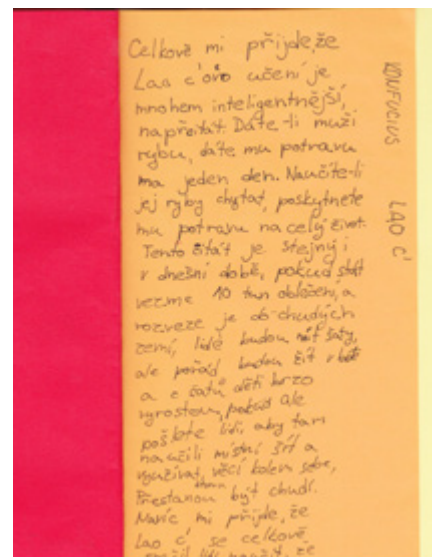 Celkově mi přijde, že
Lao c'ovo učení je
mnohem inteligentnější,
např. citát. Dáte-li muži
rybu, dáte mu potravu
na jeden den. Naučíte-li
jej ryby chytat, poskytnete
mu potravu na celý život.
Tento citát je stejný i
v dnešní době, pokud stát
vezme 10 tun oblečení, a
rozveze je do chudých
zemí, lidé budou mít šaty,
ale pořád budou žít v bídě
a z šatů děti brzo
vyrostou, pokud ale
pošlete lidi, aby tam
naučili místní šít a
využívat věcí kolem sebe,
Přestanou být chudí.
Navíc mi přijde, že
Lao c' se celkově
lidi naučit, že
KONFUCIUS LAO C'